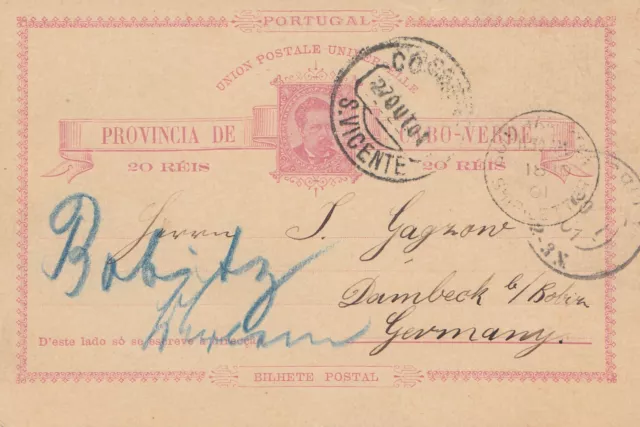 PORTUGAL
UNION POSTALE UNIVERSELLE
PROVINCIA DE CABO-VERDE
20 RÉIS 20 RÉIS
S. VICENTE
27 OUT 01
Herrn J. Gagzow
Dambeck b/Bobitz
Germany.
Bobitz
D'este lado só se escreve a direcção
BILHETE POSTAL